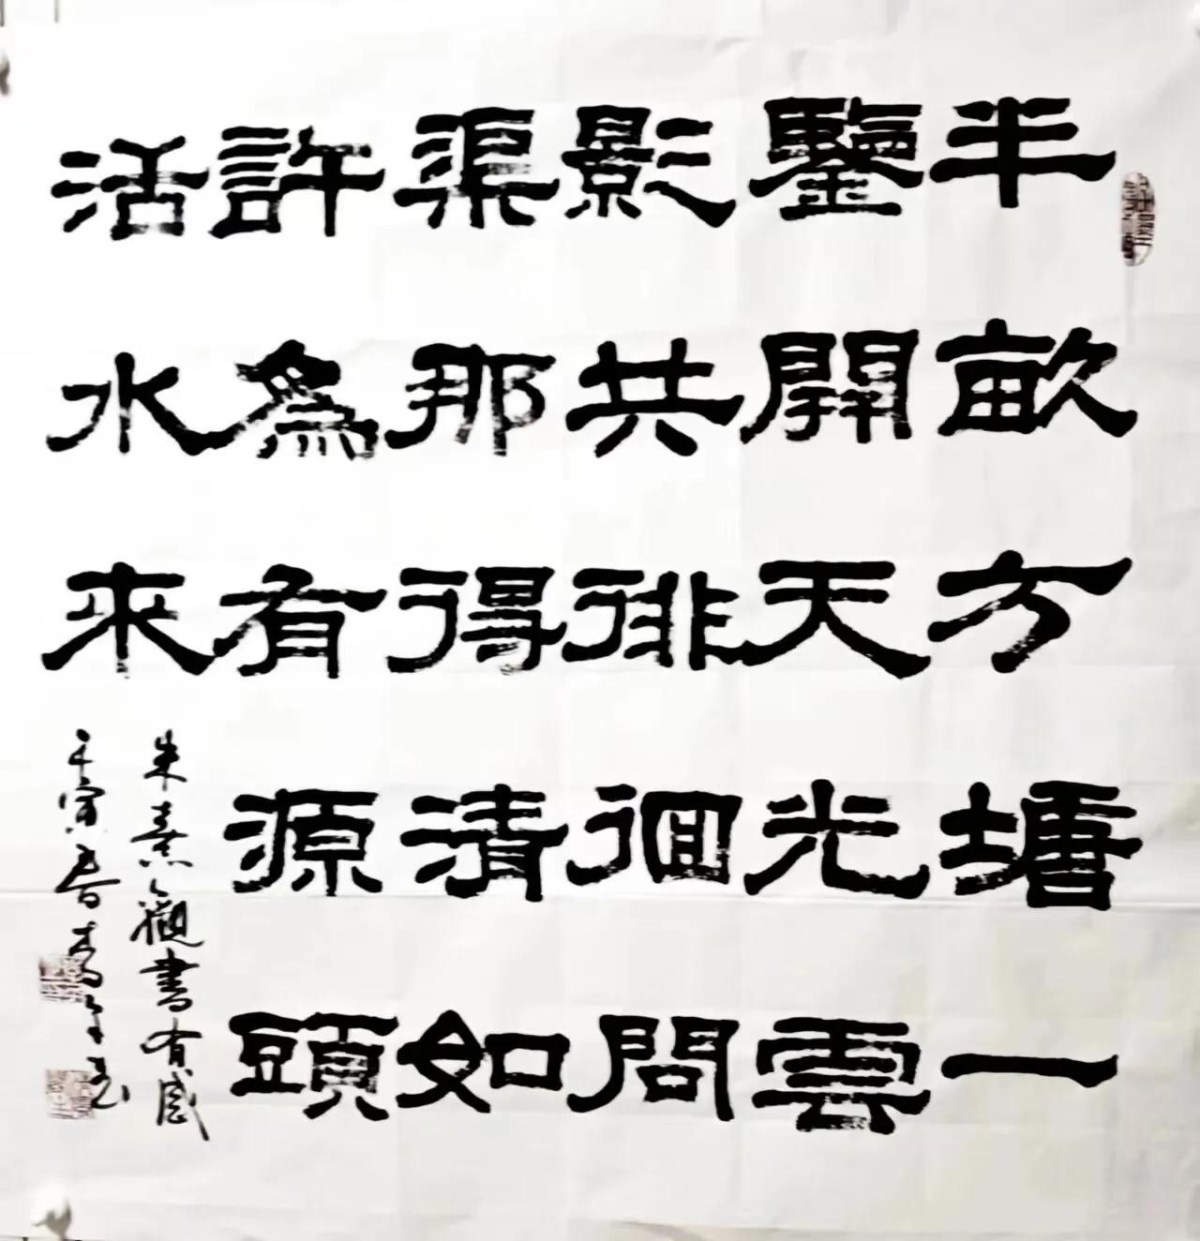 半畝方塘一
鑒開天光雲
影共徘徊問
渠那得清如
許為有源頭
活水來
朱熹觀書有感
壬寅春